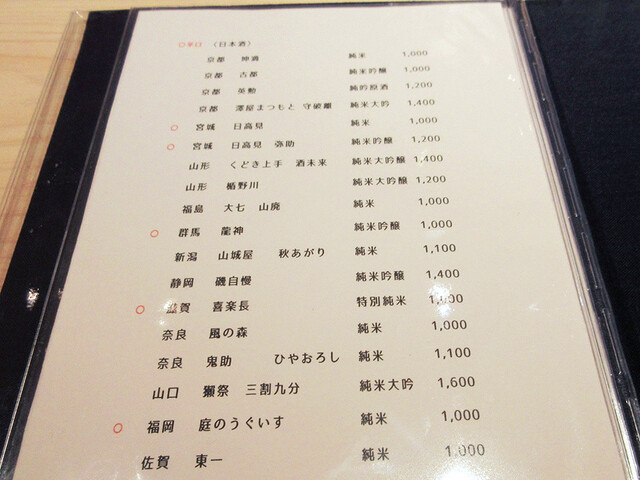 ○辛口 (日本酒)
京都 坤滴 純米 1,000
京都 古都 純米吟醸 1,000
京都 英勲 純吟原酒 1,200
京都 澤屋まつもと 守破離 純米大吟 1,400
○ 宮城 日高見 純米 1,000
○ 宮城 日高見 弥助 純米吟醸 1,200
山形 くどき上手 酒未来 純米大吟醸 1,400
山形 楯野川 純米大吟醸 1,200
福島 大七 山廃 純米 1,000
○ 群馬 龍神 純米吟醸 1,000
新潟 山城屋 秋あがり 純米 1,100
静岡 磯自慢 純米吟醸 1,400
○ 滋賀 喜楽長 特別純米
奈良 風の森 純米 1,000
奈良 鬼助 ひやおろし 純米 1,100
山口 獺祭 三割九分 純米大吟 1,600
○ 福岡 庭のうぐいす 純米 1,000
佐賀 東一 純米 1,000